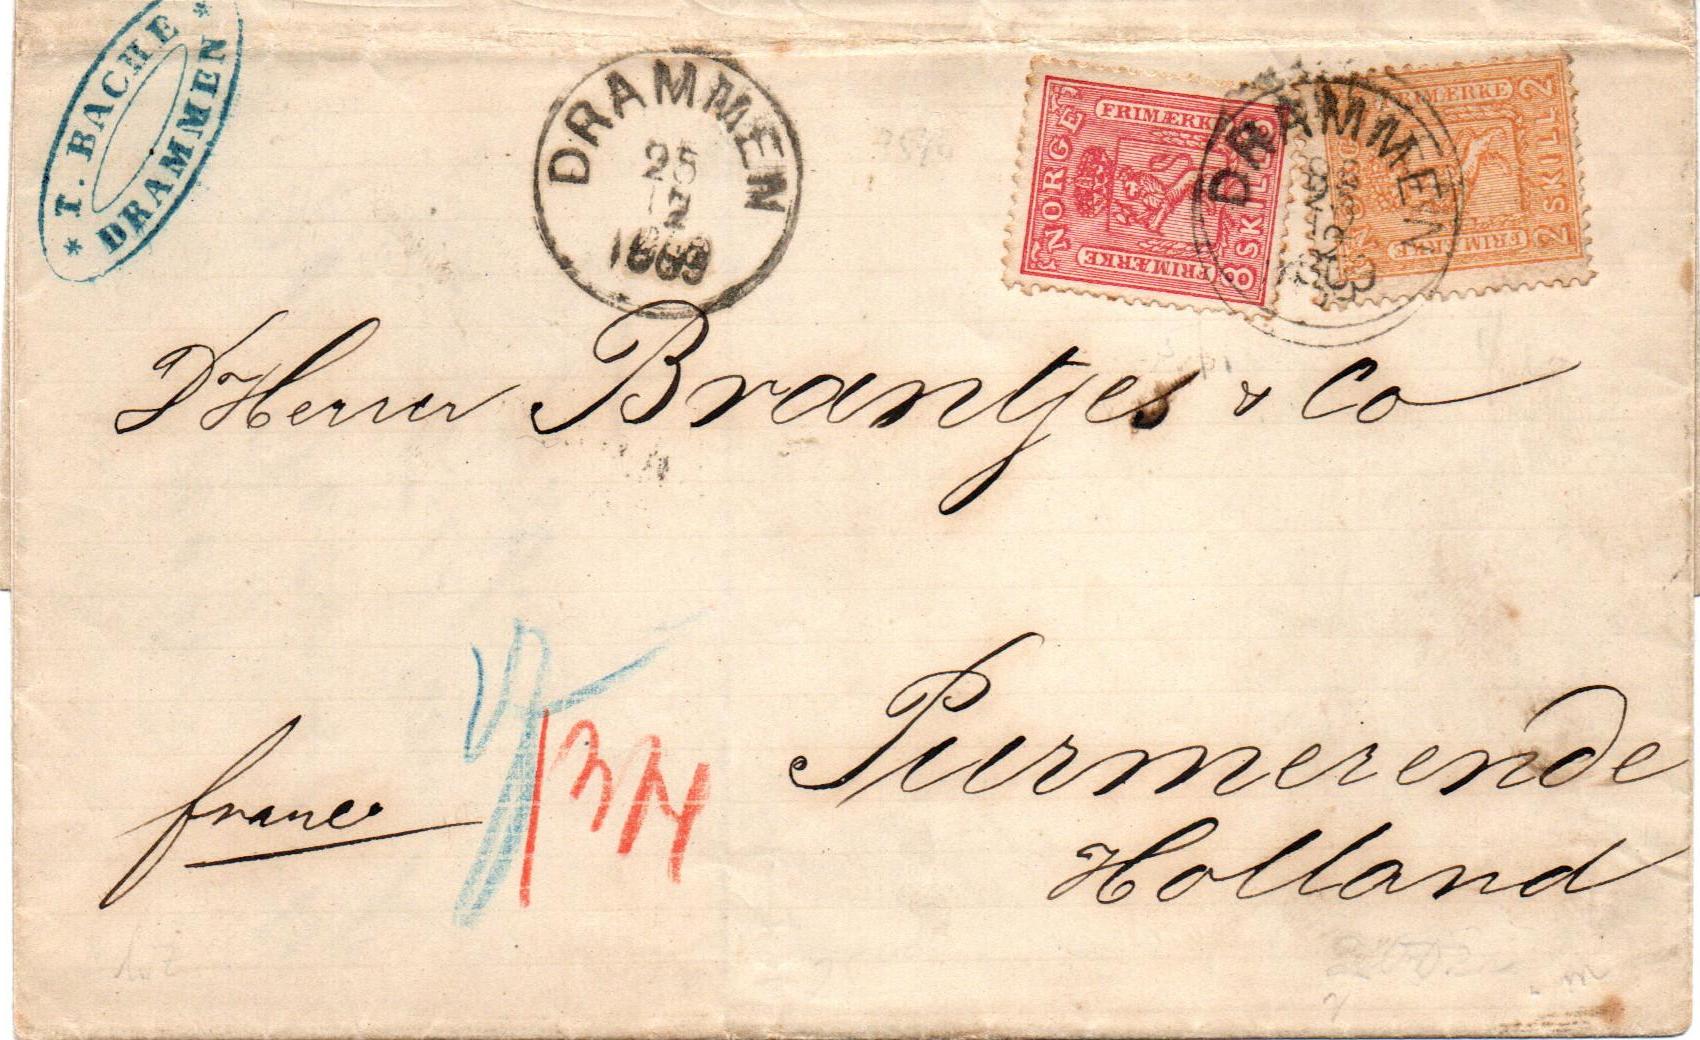 * T. BACHE *
DRAMMEN
DRAMMEN
25
2
NORGE
FRIMÆRKE
8 SKILL
FRIMÆRKE
FRIMÆRKE
2 SKILL 2
FRIMÆRKE
DRAMMEN
D'Herrer Brantjes & Co
franco
Purmerende
Holland